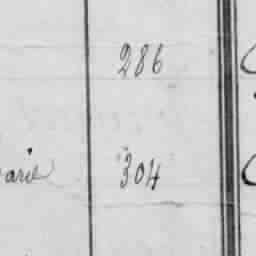 286
arie 304